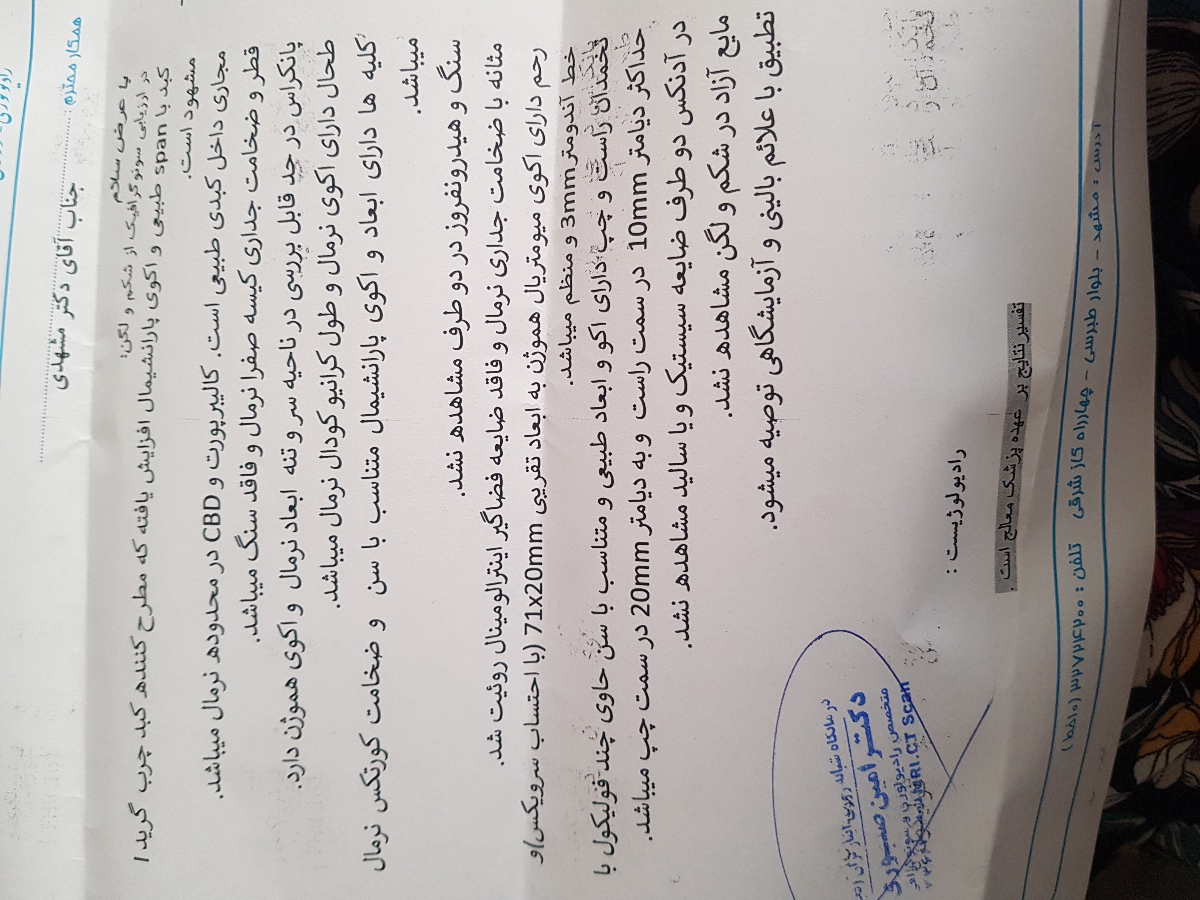 همکار محترم جناب آقای دکتر مشهدی
با عرض سلام
در ارزیابی سونوگرافیک از شکم و لگن:
کبد با span طبیعی و اکوی پارانشیمال افزایش یافته که مطرح کننده کبد چرب گرید I
مشهود است.
مجاری داخل کبدی طبیعی است. کالیبرپورت و CBD در محدوده نرمال میباشد.
قطر و ضخامت جداری کیسه صفرا نرمال و فاقد سنگ میباشد.
پانکراس در حد قابل بررسی در ناحیه سر و تنه ابعاد نرمال و اکوی هموژن دارد.
طحال دارای اکوی نرمال و طول کرانیو کودال نرمال میباشد.
کلیه ها دارای ابعاد و اکوی پارانشیمال متناسب با سن و ضخامت کورتکس نرمال
میباشد.
سنگ و هیدرونفروز در دو طرف مشاهده نشد.
مثانه با ضخامت جداری نرمال و فاقد ضایعه فضاگیر اینترالومینال روئیت شد.
رحم دارای اکوی میومتریال هموژن به ابعاد تقریبی 71x20mm (با احتساب سرویکس)و
خط آندومتر 3mm و منظم میباشد.
تخمدان راست و چپ دارای اکو و ابعاد طبیعی و متناسب با سن حاوی چند فولیکول با
حداکثر دیامتر 10mm در سمت راست و به دیامتر 20mm در سمت چپ میباشد.
در آدنکس دو طرف ضایعه سیستیک و یا سالید مشاهده نشد.
مایع آزاد در شکم و لگن مشاهده نشد.
تطبیق با علائم بالینی و آزمایشگاهی توصیه میشود.
رادیولوژیست :
دکتر امین صبوری
متخصص رادیولوژی و سونوگرافی
MRI.CT Scan
تفسیر نتایج بر عهده پزشک معالج است .
آدرس : مشهد - بلوار طبرسی - چهارراه گاز شرقی تلفن : ۳۲۷۲۴۲۰۰ (۱۰خط)